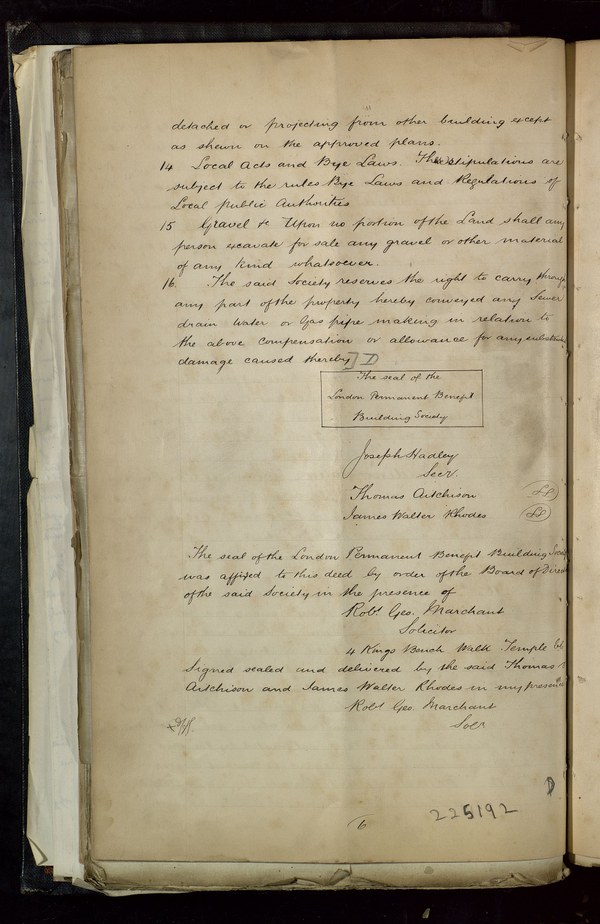 detached or projecting from other building except
as shewn on the approved plans.
14 Local Acts and Bye Laws. These stipulations are
subject to the rules Bye Laws and Regulations of
Local public Authorities
15 Gravel &c Upon no portion of the Land shall any
person excavate for sale any gravel or other material
of any kind whatsoever.
16. The said Society reserves the right to carry through
any part of the property hereby conveyed any Sewer
drain water or Gas pipe making in relation to
the above compensation or allowance for any substantial
damage caused thereby] D
The seal of the
London Permanent Benefit
Building Society
Joseph Hadley
Secy.
Thomas Aitchison
James Walter Rhodes
The seal of the London Permanent Benefit Building Society
was affixed to this deed by order of the Board of Direct
of the said Society in the presence of
Robt Geo. Marchant
Solicitor
4 Kings Bench Walk Temple
Signed sealed and delivered by the said Thomas
Aitchison and James Walter Rhodes in my presence
Robt Geo. Marchant
Solr
D
6
225192